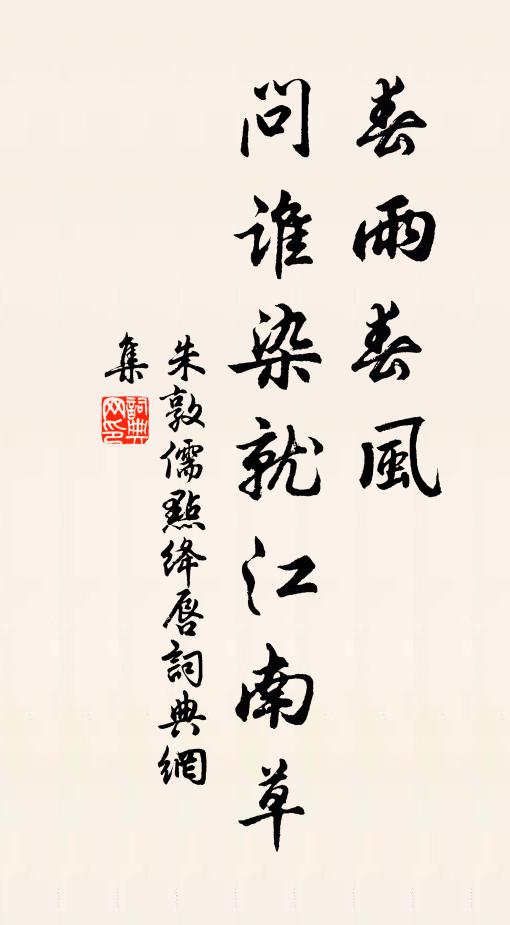 春雨春風
問誰染就江南草
朱敦儒點絳唇詞典網
集
詞典網印